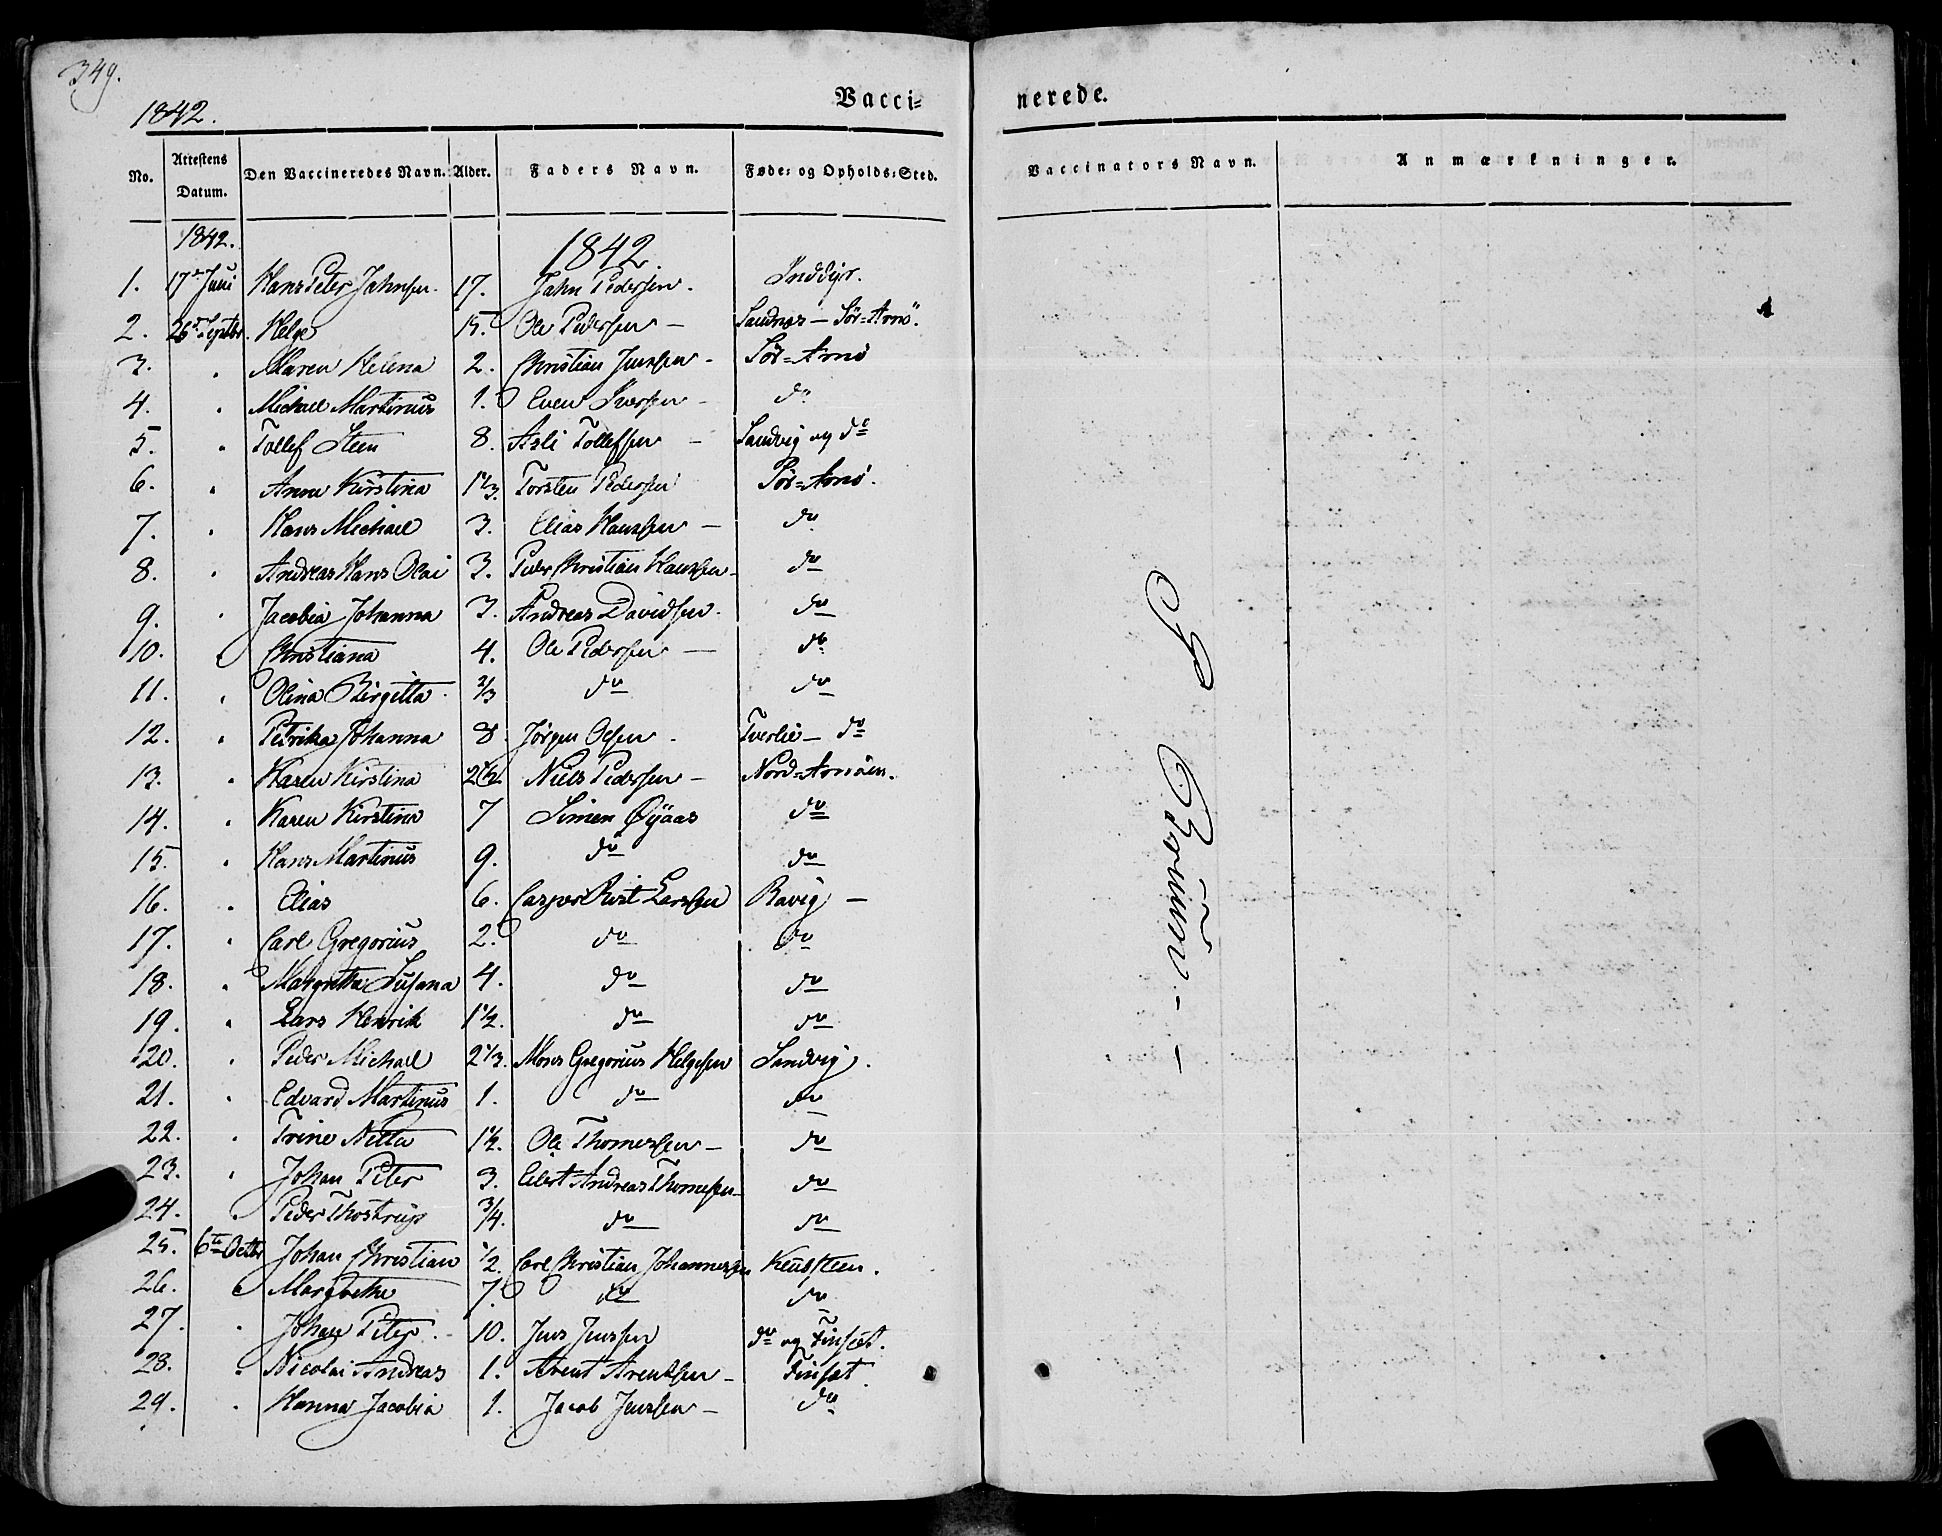 349.
1842.
Vacci= nerede.
No. Attestens Datum. Den Vaccineredes Navn. Alder. Faders Navn. Føde= og Opholds=Sted. Vaccinators Navn. Anmærkninger.
1842. 1842
1. 17de Juni Hans Peter Jahnsen. 17. Jahn Pedersen. Inddyr.
2. 26de Septbr. Helge 15. Ole Pedersen — Sandnæs — Sör=Arnö.
3. " Maren Helena 2. Christian Jenssen — Sör=Arnö
4. " Michael Martinus 1. Even Iversen — do
5. " Tollef Steen 8. Asli Tollefsen — Sandvig og do
6. " Anne Kirstina 1 1/3. Torsten Pedersen Sör=Arnö.
7. " Hans Michael 3. Elias Hanssen — do
8. " Andreas Hans Olai 3. Peder Christian Hanssen — do
9. " Jacobia Johanna 3. Andreas Davidsen. do
10. " Christiana 4. Ole Pedersen — do
11. " Olina Birgitta 2/3 do do
12. " Petrika Johanna 8. Jörgen Olsen. Tverlie — do
13. " Karen Kirstina 2 1/2 Niels Pedersen — Nord=Arnöen.
14. " Karen Kirstina 7 Simen Öÿaas do
15. " Hans Martinus 9. do do
16. " Elias 6. Casper Larssen Ravig —
17. " Carl Gregorius 2. do do
18. " Margretha Susana 4. do do
19. " Lars Henrik 1 1/2. do do
20. " Peder Michael 2 1/3. Moses Gregorius Helgesen Sandvig.
21. " Edvard Martinus 1. do do
22. " Trine Netta 1 1/2. Ole Thomessen — do
23. " Johan Peter 3. Eilert Andreas Thomesen — do
24. " Peder Thostrup 3/4. do do
25. 6te Octbr Johan Christian 1/2. Carl Christian Johannesen
26. " Margrethe 7. do do
27. " Johan Peter. 10. Jens Jenssen do og Finset.
28. " Nicolai Andreas 1. Arent Arentsen — Finset.
29. " Hanna Jacobia 1. Jacob Jenssen — do